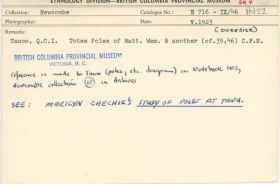 ETHNOLOGY DIVISION—BRITISH COLUMBIA PROVINCIAL MUSEUM
Collection: Newcombe Catalogue No.: E 716 - IX/46 
Photographer: Date: P.1923
(oversize)
Tanoo, Q.C.I. Totem Poles of Matt. Wms. & another (cf.39,46) C.F.N.
BRITISH COLUMBIA PROVINCIAL MUSEUM
VICTORIA, B. C.
reference is made to Tanoo (poles, etc. diagram) in Notebook
Newcombe collection in Archives
SEE: MARILYN CHECHIK'S STUDY OF POLES AT TANU.